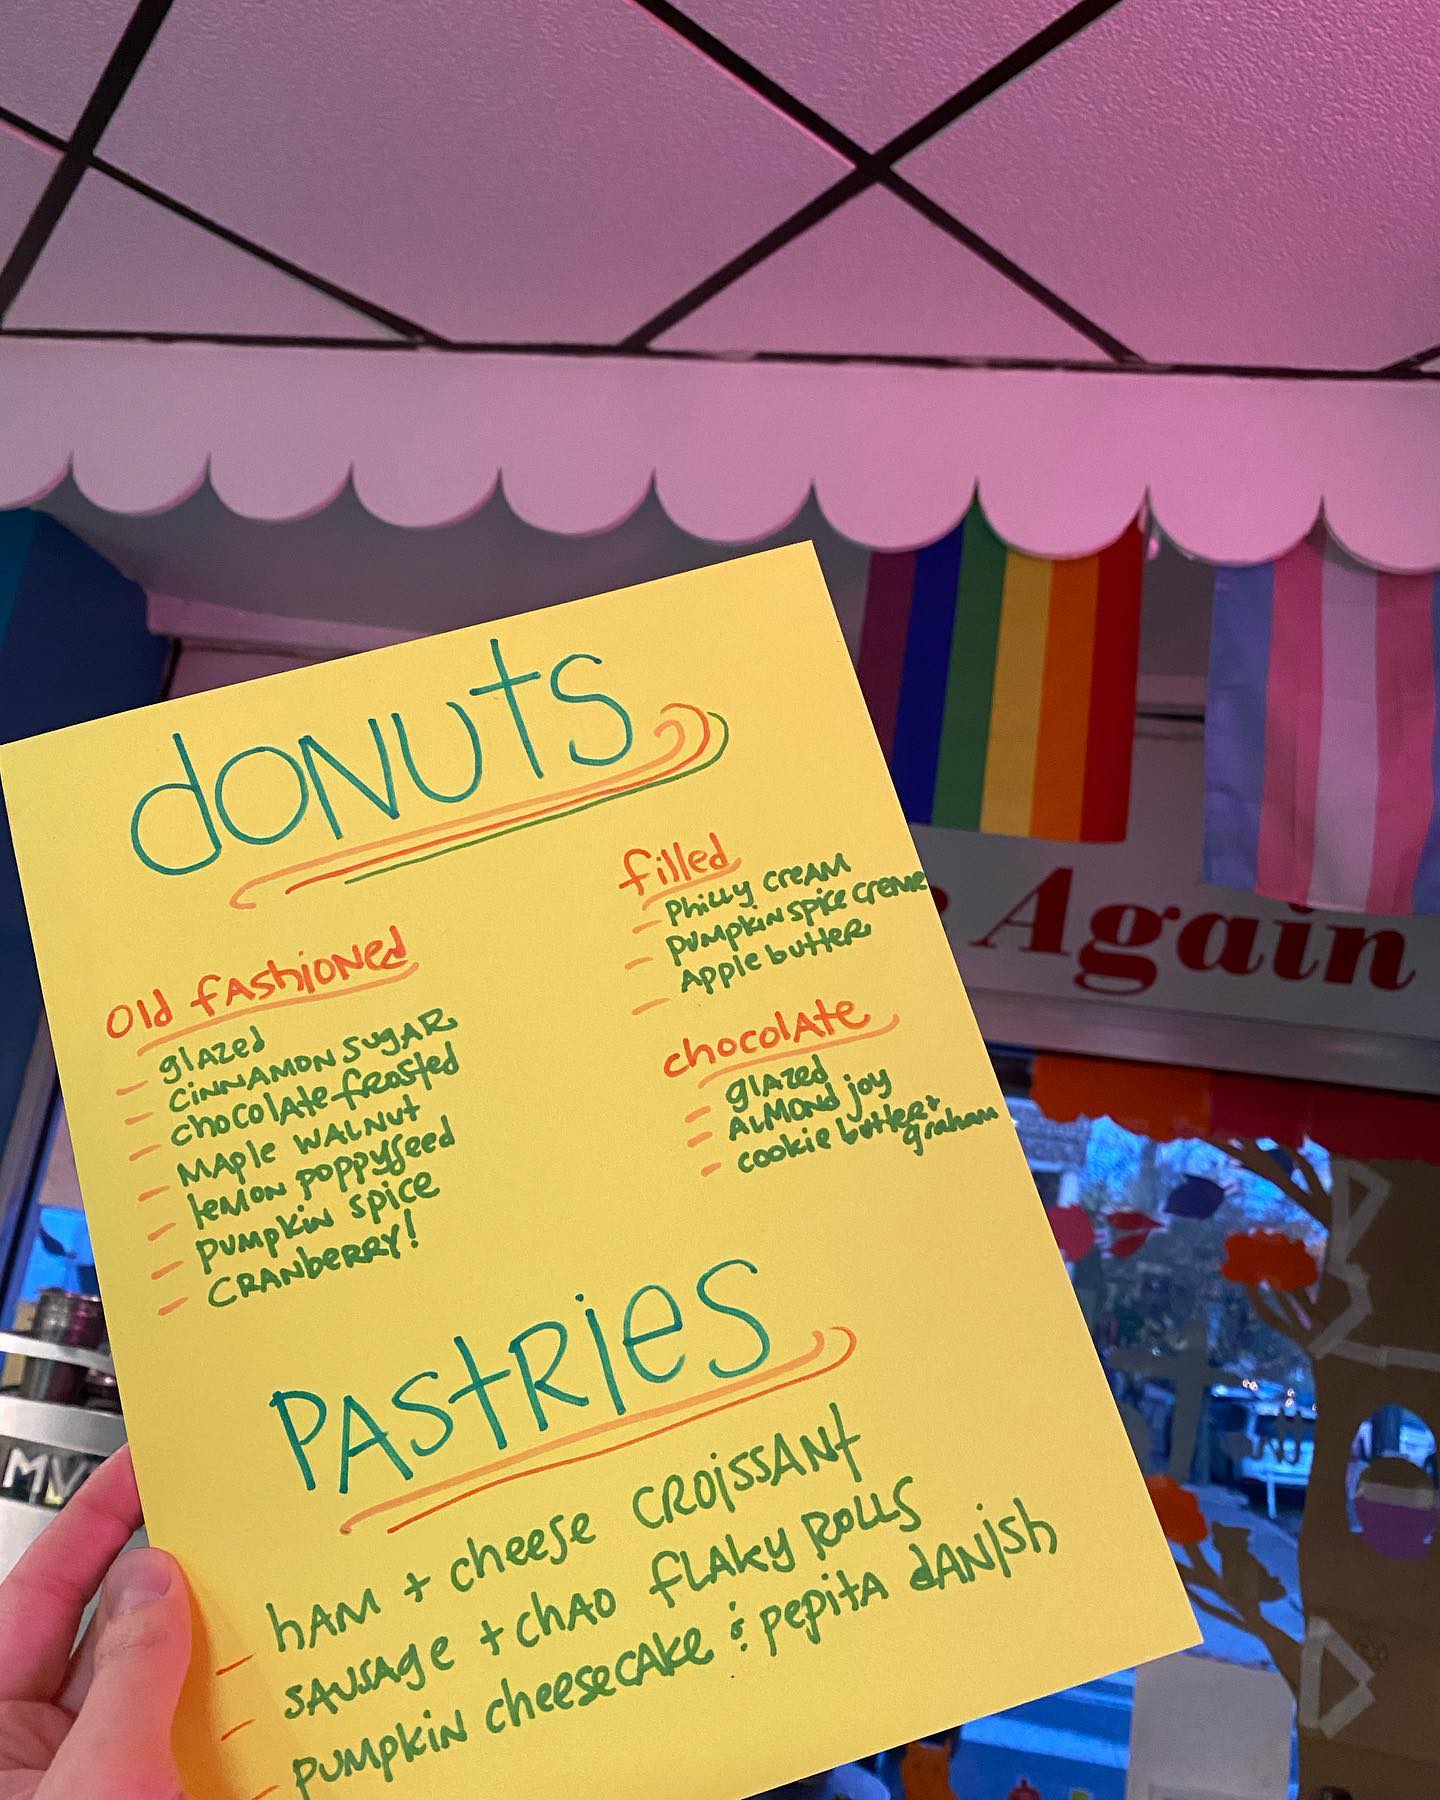 donuts
Old fashioned
- glazed
- cinnamon sugar
- chocolate frosted
- maple walnut
- lemon poppyseed
- pumpkin spice
- cranberry!
filled
- philly cream
- pumpkin spice creme
- Apple butter
chocolate
- glazed
- almond joy
- cookie butter +
graham
Pastries
- ham + cheese croissant
- sausage + chao flaky rolls
- pumpkin cheesecake & pepita danish
Again